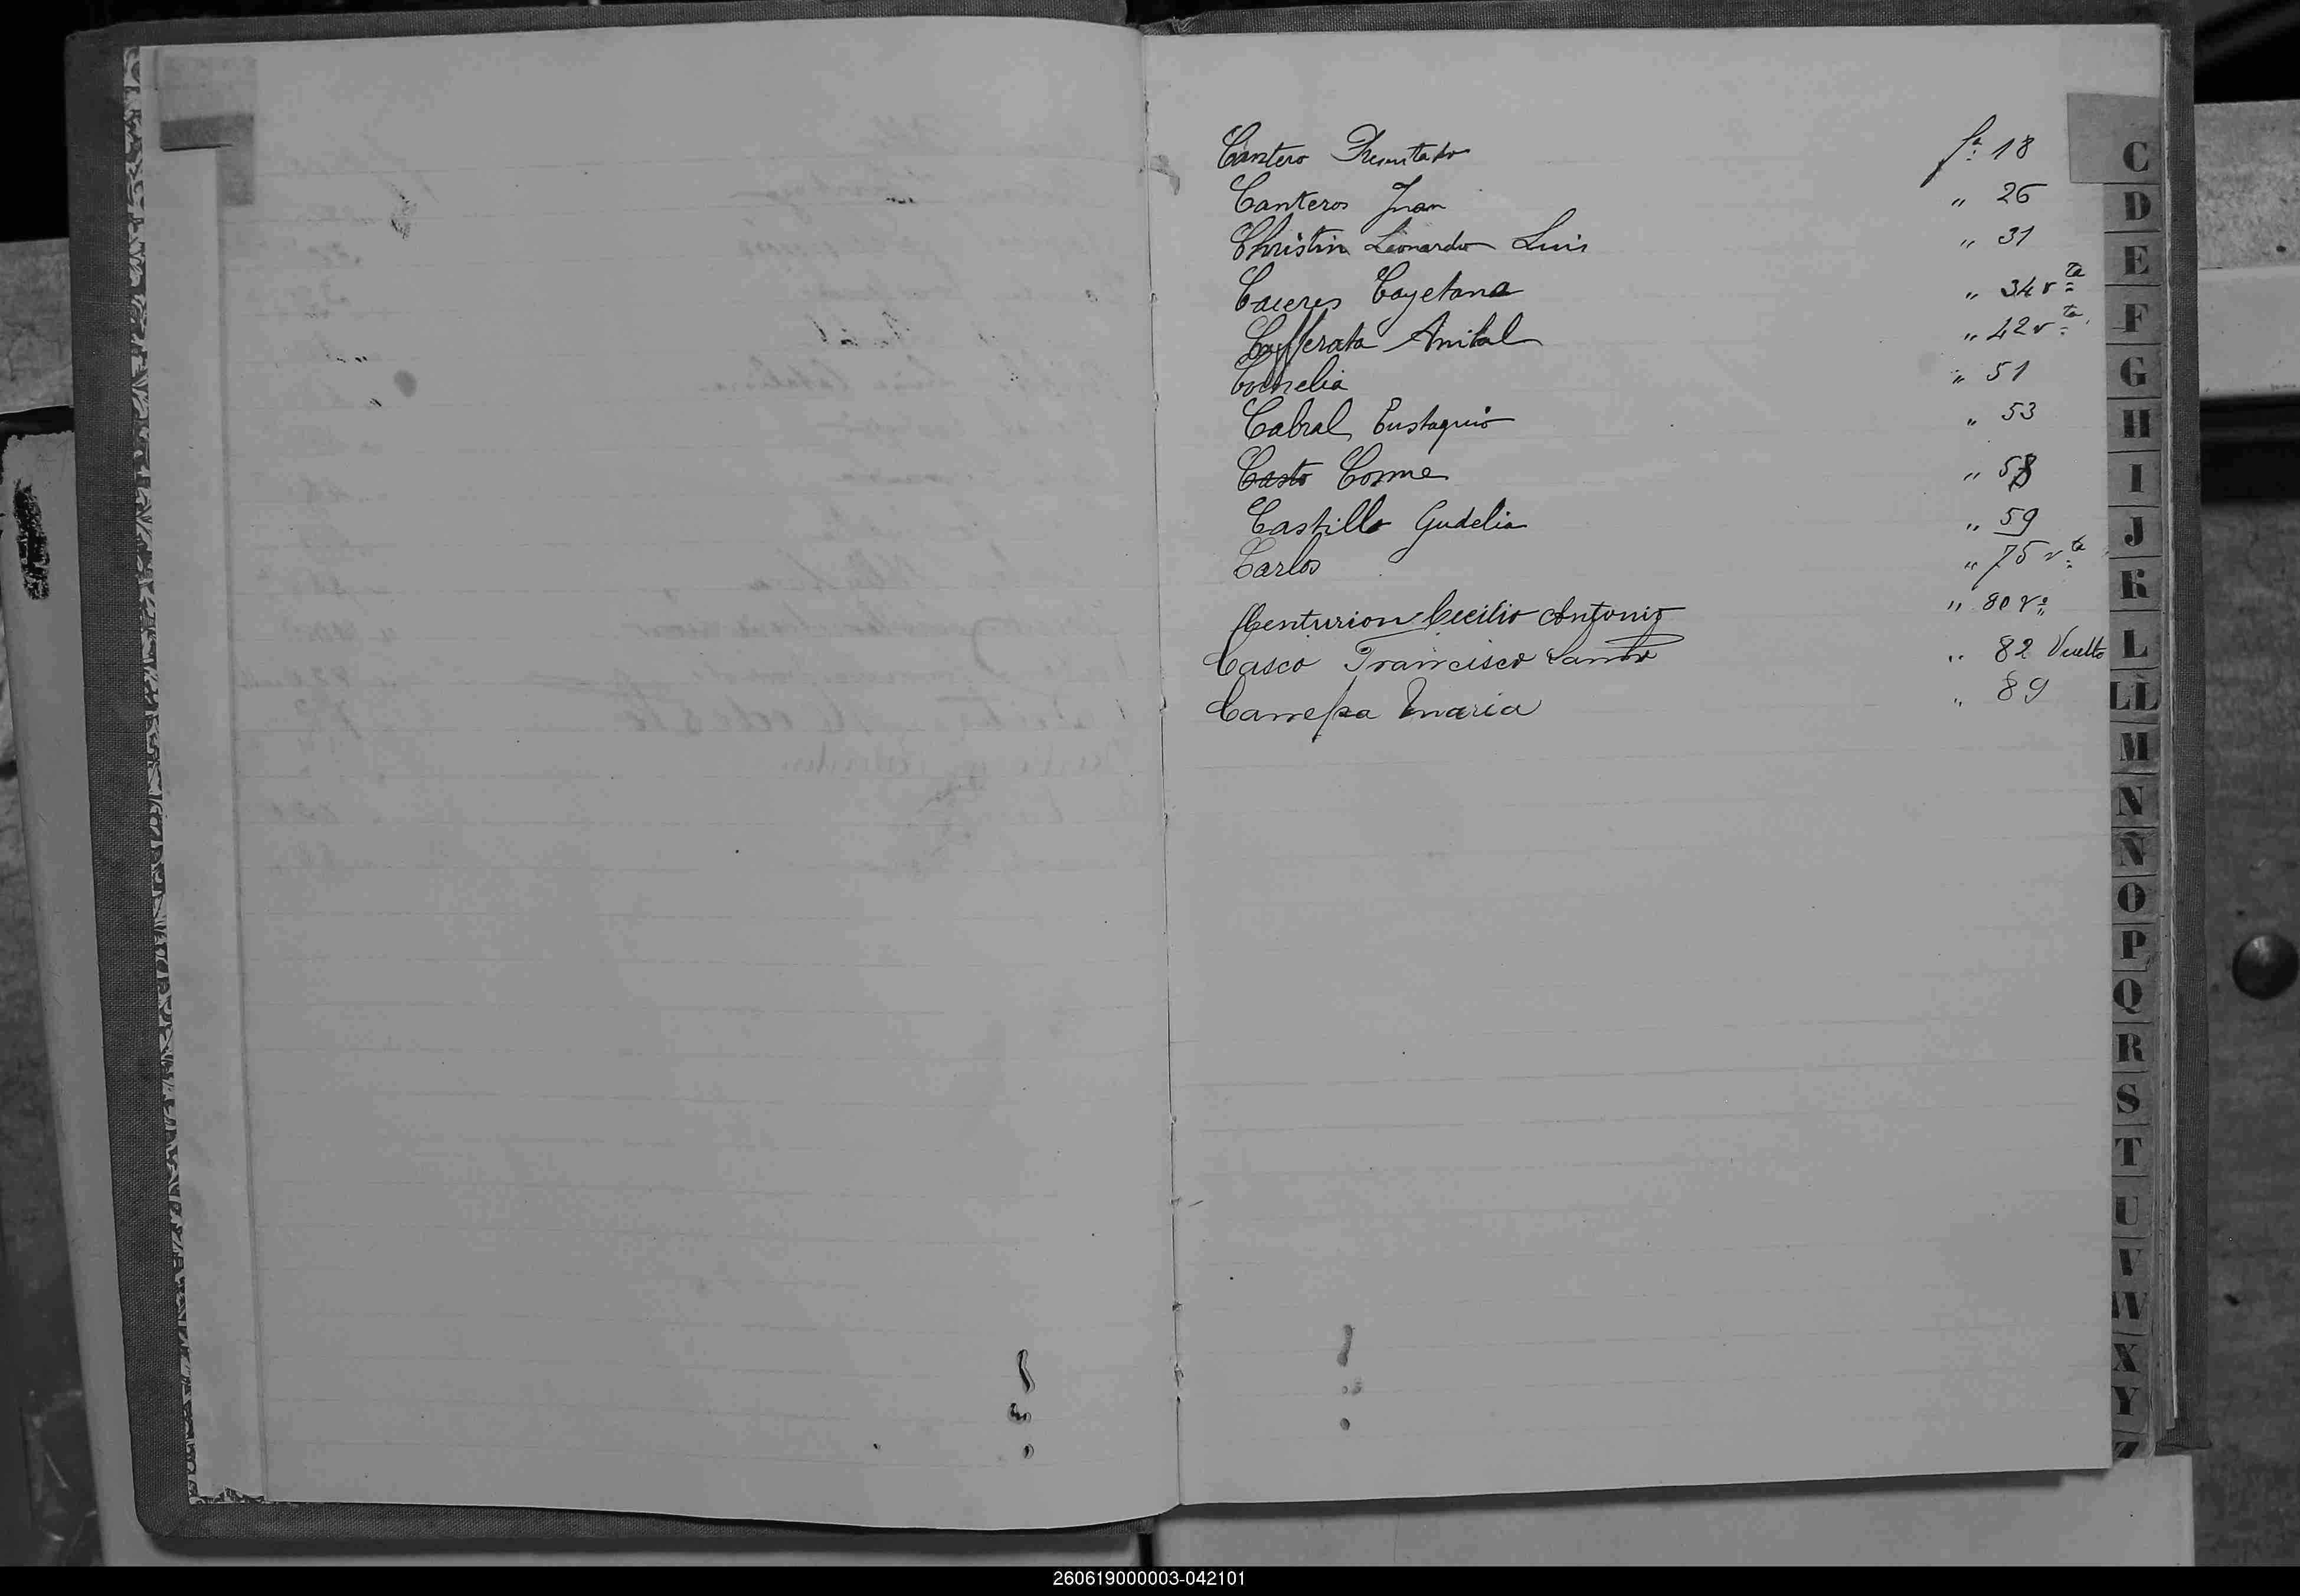 Cantero fa: 18
Canteros Juan " 26
Christin Leonardo Luis " 31
Caceres Cayetana " 34 v ta
Cafferata Anibal " 42 v ta
Cornelia " 51
Cabral Eustaquio " 53
Casto Cosme " 58
Castillo Gudelia " 59
Carlos " 75 v ta
Centurion Cecilio Antonio " 80 vº
Casco Francisco " 82 Vuelto
Canepa Maria " 89
C
D
E
F
G
H
I
J
K
L
LL
M
N
Ñ
O
P
Q
R
S
T
U
V
W
X
Y
Z
260619000003-042101